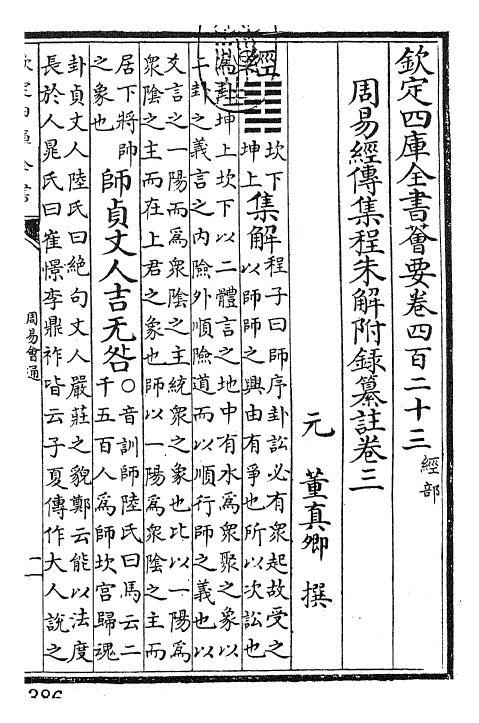 欽定四庫全書薈要卷四百二十三 經部
周易經傳集程朱解附錄纂註卷三
元 董真卿 撰
經 ䷆ 坎下
坤上 集解 程子曰師序卦訟必有衆起故受之
以師師之興由有爭也所以次訟也
為卦坤上坎下以二體言之地中有水爲衆聚之象以
二卦之義言之内險外順險道而以順行師之義也以
爻言之一陽而爲衆陰之主統衆之象也比以一陽爲
衆陰之主而在上君之象也師以一陽爲衆陰之主而
居下將帥
之象也 師貞丈人吉无咎 ○音訓師陸氏曰馬云二
千五百人爲師坎宮歸魂
卦貞丈人陸氏曰絶句丈人嚴莊之貌鄭云能以法度
長於人晁氏曰崔憬李鼎祚皆云子夏傳作大人說之
周易會通
二
386